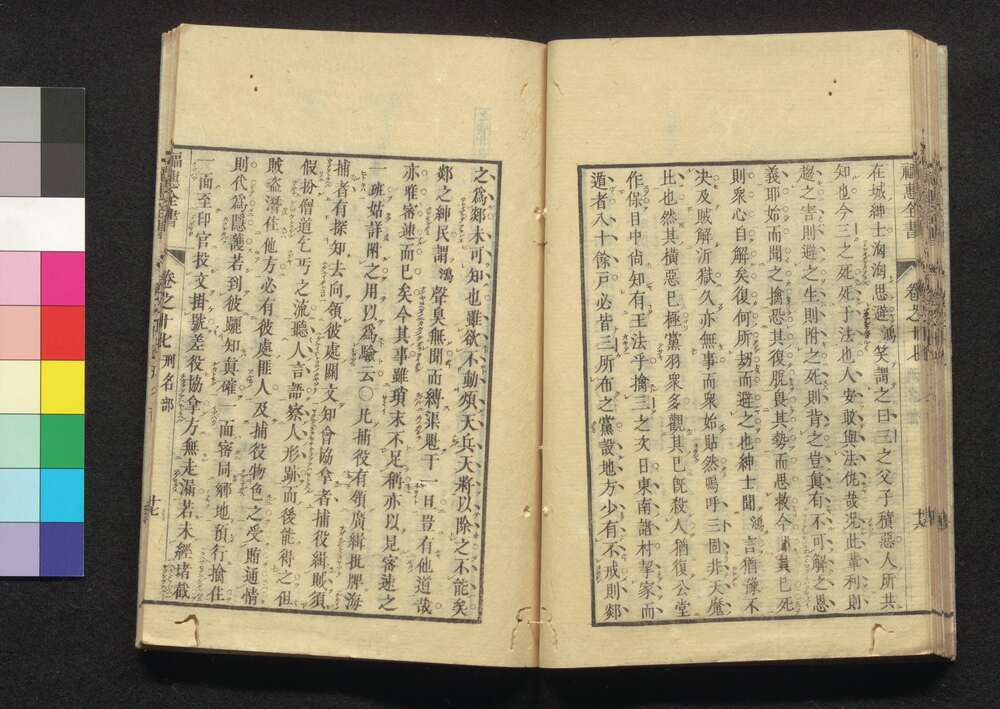 福惠全書 卷之十七
在城紳士洶洶思避鴻笑謂之曰三之父子積惡人所共
知也今三之死死于法也人安敢與法仇哉況此輩利則
趨之害則避之生則附之死則背之豈眞有不可解之恩
義耶始而聞之擒恐其復脫畏其勢而思救今三已死
則衆心自解矣復何所刼而避之也紳士聞鴻言猶豫不
决及賊解沂獄久亦無事而衆始貼然嗚呼三固非天魔
比也然其橫惡已極黨羽衆多觀其已旣殺人猶復公堂
作保目中尙知有王法乎擒三之次日東南諸村挈家而
遁者八十餘戸必皆三所布之黨設地方少有不戒則郯
之爲郯未可知也雖欲不動煩天兵天將以除之不能矣
郯之紳民謂鴻聲臭無聞而縛渠魁于一旦豈有他道哉
亦唯審速而已矣今其事雖瑣末不足稱亦以見審速之
一班姑詳附之用以爲驗云○凡捕役有領廣緝批牌海
捕者有探知去向領彼處關文知會協拿者捕役緝賊須
假扮僧道乞丐之流聽人言語察人形跡而後能得之但
賊盜潛住他方必有彼處匪人及捕役物色之受賄通情
則代爲隱護若到彼騐知眞確一面審同鄉地預行擒住
一面至印官投文掛號差役協拿方無走漏若未經堵截
福惠全書 卷之十七 刑名部 廿七